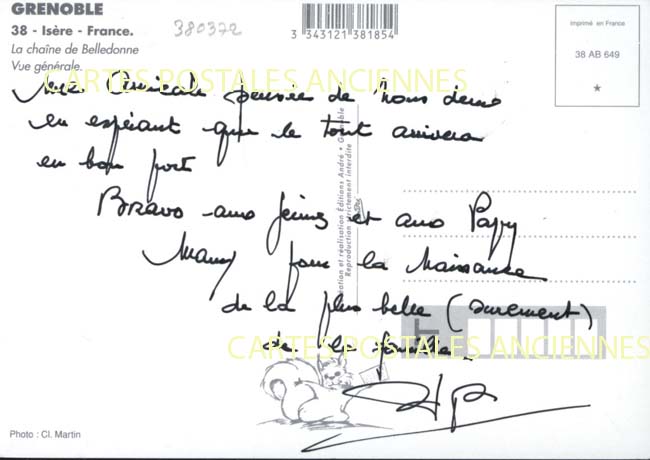 GRENOBLE
38 - Isère - France.
La chaîne de Belledonne
Vue générale.
380372
3 343121 381854
imprimé en France
38 AB 649
CARTES POSTALES ANCIENNES
Amicale pensée de nous
en espérant que le tout arrivera
en bon port
BRAVO aux et aux Papy
Mamy pour la Naissance
de la plus belle (surement)
de la famille
Création et réalisation Éditions André • Grenoble
Reproduction strictement interdite
CARTES POSTALES ANCIENNES
Photo : Cl. Martin